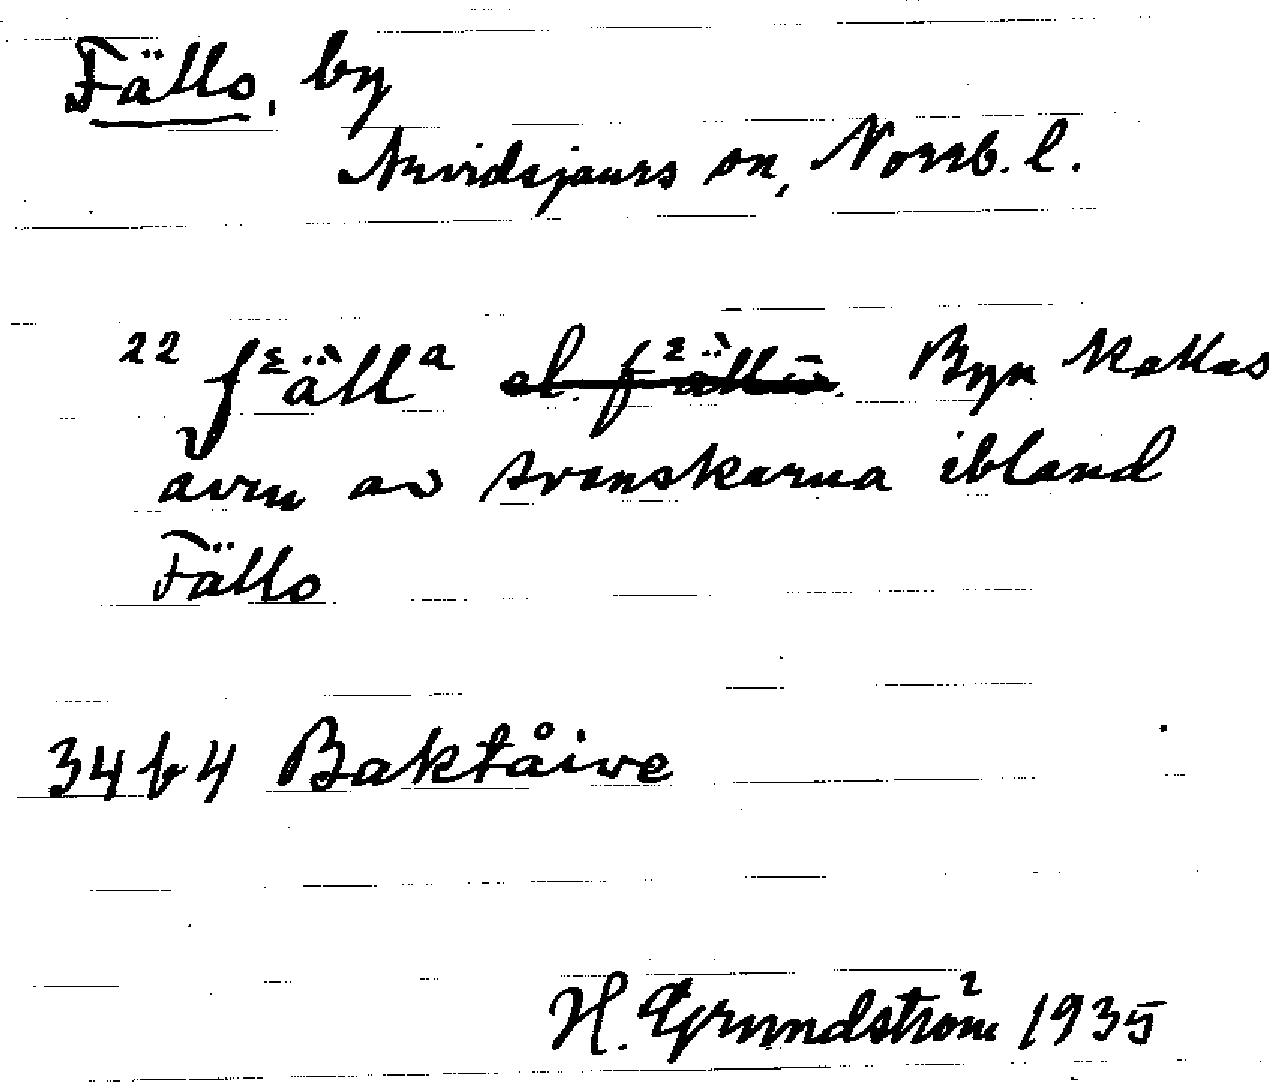 Fällo, by
Arvidsjaurs sn, Norrb. l.
22 fᵋällᵃ Byn kallas
även av svenskarna ibland
Fällo
34 b 4 Baktåive
H. Grundström 1935